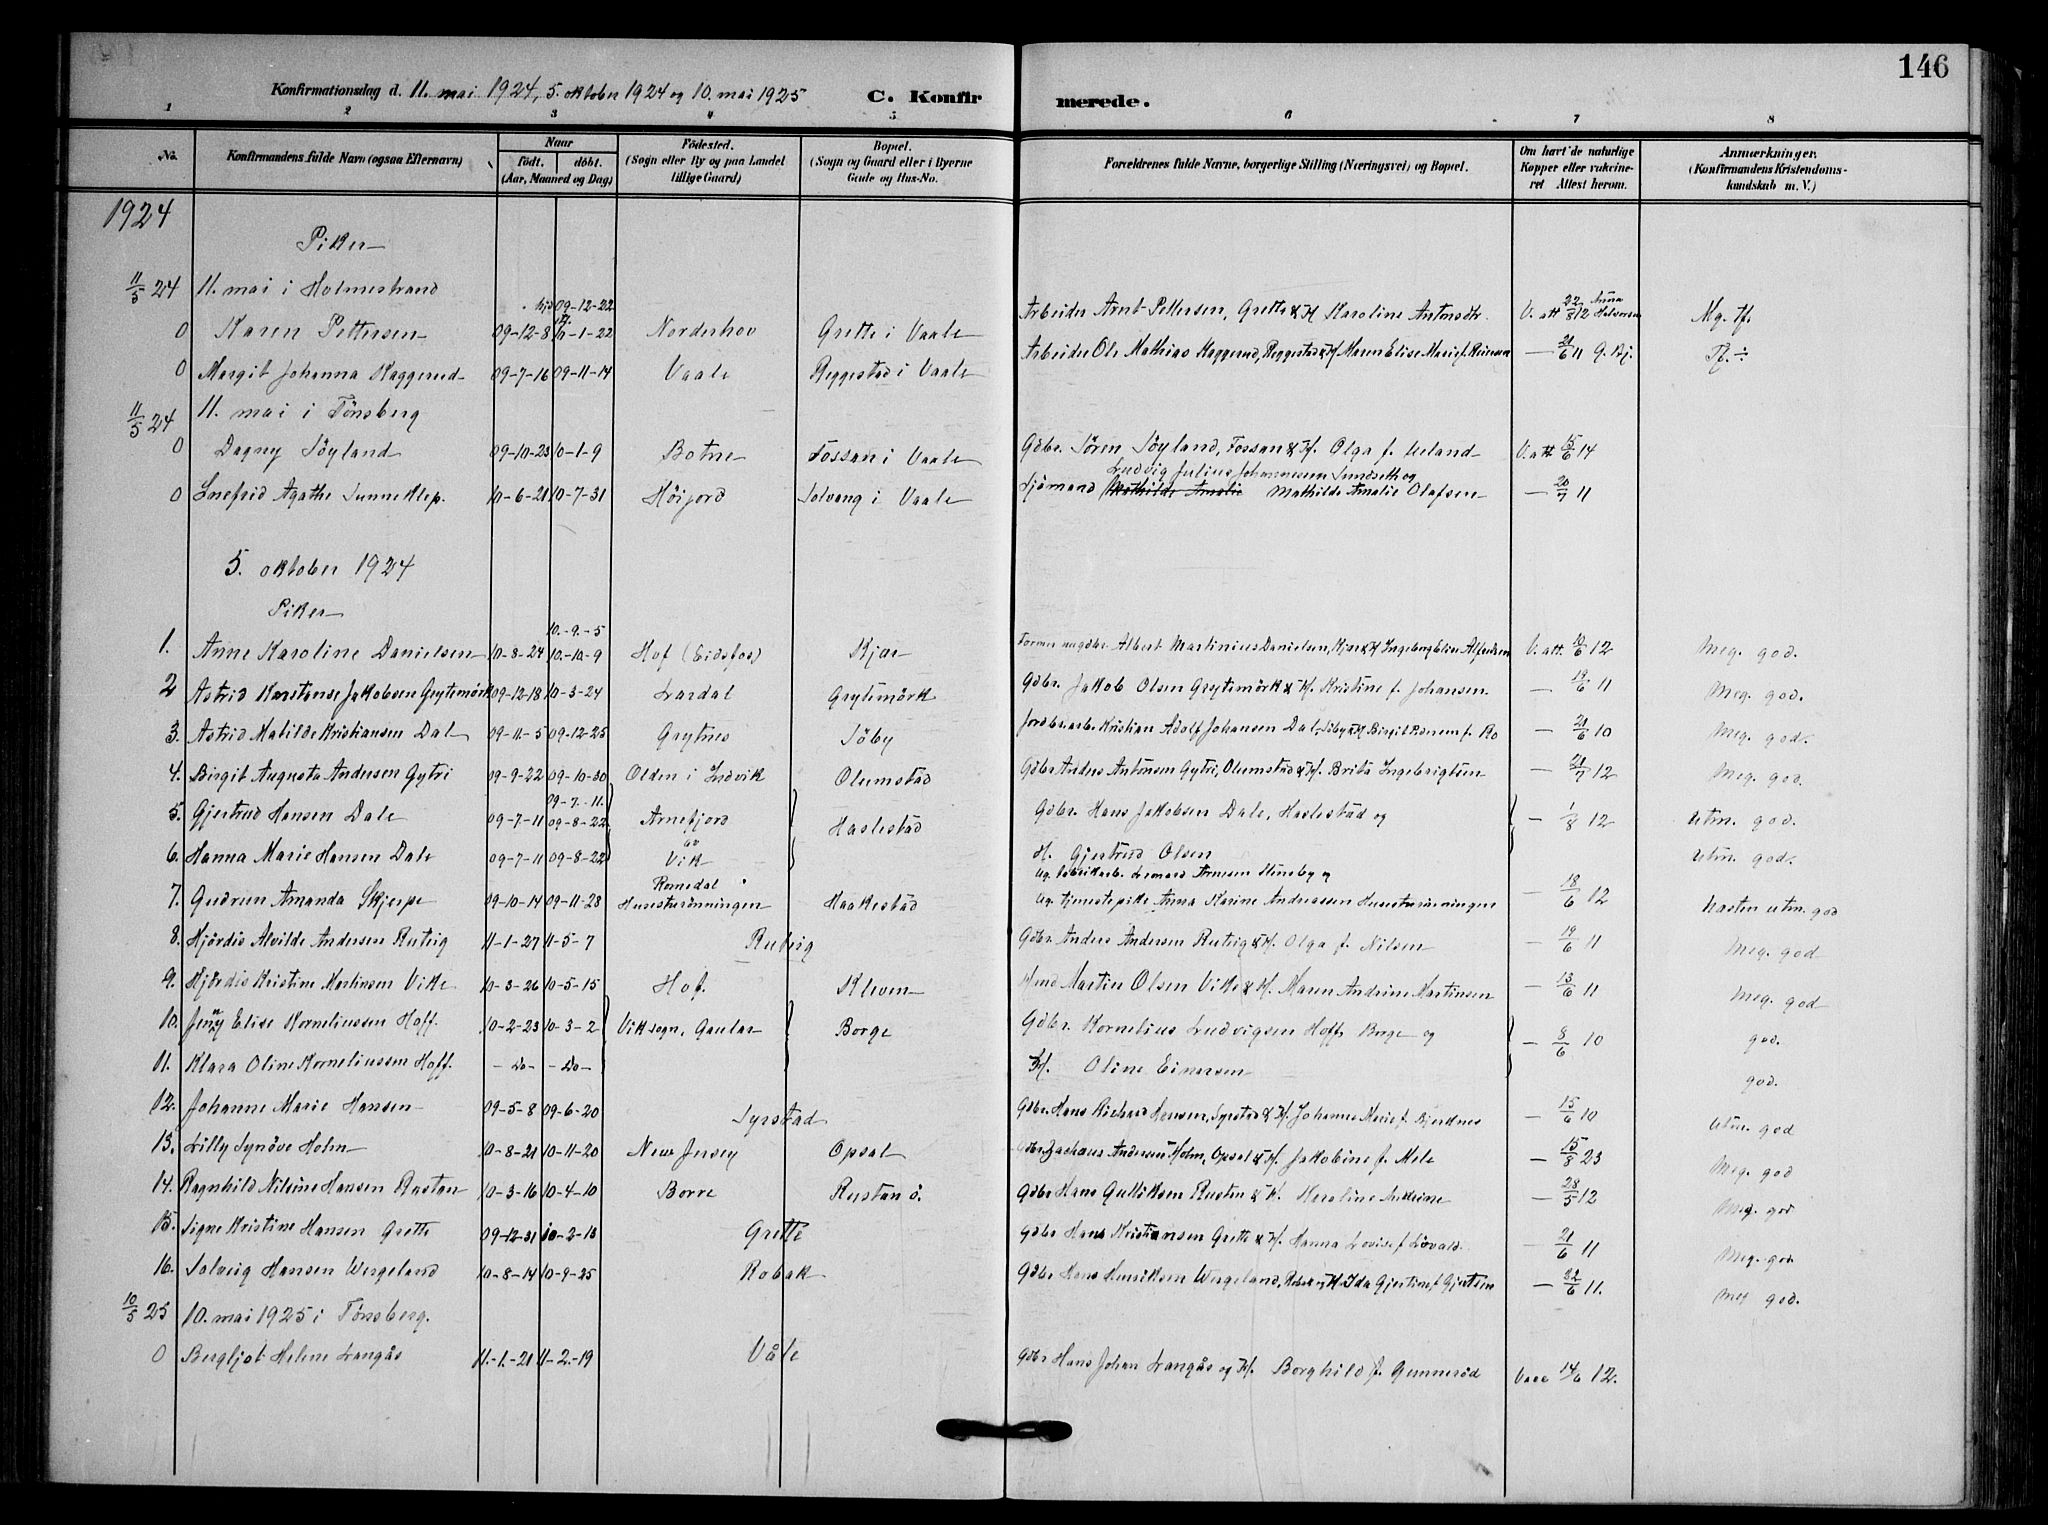 146
Konfirmationsdag d. 11. mai 1924, 5. oktober 1924 og 10. mai 1925 C. Konfirmerede.
1 2 3 4 5 6 7 8
No. Konfirmandens fulde Navn (ogsaa Efternavn) Naar født. døbt. (Aar, Maaned og Dag) Födested. (Sogn eller By og paa Landet tillige Gaard) Bopæl. (Sogn og Gaard eller i Byerne Gade og Hus-No. Forældrenes fulde Navne, borgerlige Stilling (Næringsvei) og Bopæl. Om havt de naturlige Kopper eller vakcineret Attest herom. Anmærkninger. (Konfirmandens Kristendomskundskab m. V.)
1924
Piker
11/5 24 11. mai i Holmestrand
09-12-22
0 Karen Pettersen 09-12-8 10-1-22 Norderhov Grette i Vaale Arbeider Arnt Pettersen, Grette & H. Karoline Antonsdtr. V. att 22/8 12 Anna Halvorsen Mg. tf.
0 Margit Johanna Haggerud 09-7-16 09-11-14 Vaale Reggestad i Vaale Arbeider Ole Mathias Haggerud, Reggestad & H. Maren Elise Marie f. Reiersen — 21/6 11 Tf. ÷
11/5 24 11. mai i Tønsberg
0 Dagny Söyland 09-10-23 10-1-9 Botne Fossan i Vaale Gdbr. Sören Söyland, Fossan & H. Olga f. Ueland V. att 15/6 14
Ludvig Julius Johannessen Sundseth og
0 Snefrid Agathe Sunneklep. 10-6-21 10-7-31 Höijord Solvang i Vaale Sjömand Mathilde Amalie Mathilde Amalie Olafsen — 20/7 11
5. oktober 1924
Piker
10.-9.-5
1. Anne Karoline Danielsen 10-8-24 10.-10-9 Hof (Eidsfos) Kjær Former Albert Martinius Danielsen, Kjær & H. Ingeborg Elise Alfredsen V. att. 10/6 12 Meg. god.
2 Astrid Konstanse Jakobsen Grytemörk 09-12-18 10-3-24 Lardal Grytemörk Gdbr. Jakob Olsen Grytemörk & H. Kristine f. Johansen — 19/6 11 Meg. god.
3. Astrid Matilde Kristiansen Dal 09-11-5 09-12-25 Grytnes Söby Jordbrarb. Kristian Adolf Johansen Dal, Söby & H. Birgit f. Bo — 21/6 10 Meg. god.
4. Birgit Augusta Andersen Gytri 09-9-22 09-10-30 Olden i Indvik Olumstad Gdbr. Anders Antonsen Gytri, Olumstad & H. Brita Ingebrigtsen — 21/7 12 Meg. god.
09-7-11.
5. Gjertrud Hansen Dale 09-7-11 09-8-22 Arnefjord Haslestad Gdbr. Hans Jakobsen Dale, Haslestad og — 1/8 12 Utm. god.
6. Hanna Marie Hansen Dale 09-7-11 09-8-22 av Vik H. Gjertrud Olsen Utm. god.
Romedal Ug. fabrikarb. Leonard Arnesen Stensby og
7. Gudrun Amanda Skjerpe 09-10-14 09-11-28 Husesturönningen Haakestad Ug. tjenestepike Anna Karine Andreassen Husesturönningen — 18/6 12 Næsten utm. god
8. Hjördis Alvilde Andersen Rutrig 11-1-27 11-5-7 Rutrig Gdbr. Anders Andersen Rutrig & H. Olga f. Nilsen — 19/6 11 Meg. god
9. Hjördis Kristine Martinsen Vike 10-3-26 10-5-15 Hof. Kleven Martin Olsen Vike & H. Maren Andrine Martinsen — 13/6 11 Meg. god
10. Jenny Elise Korneliussen Hoff. 10-2-23 10-3-2 Vik sogn, Gaular Borge Gdbr. Kornelius Ludvigsen Hoff, Borge og — 8/6 10 god.
11. Klara Oline Korneliussen Hoff. - do - - do - H. Oline Einarsen god.
12. Johanne Marie Hansen 09-5-8 09-6-20 Syrstad Gdbr. Hans Richard Hansen, Syrstad & H. Johanne Marie f. Bjerknes — 15/6 10 Utm. god
13. Lilly Synöve Holm 10-8-21 10-11-20 New Jersey Opsal Gdbr. Zachaus Andersen Holm, Opsal & H. Jakobine f. Mele — 15/8 23 Meg. god
14. Ragnhild Nilsine Hansen Rustan 10-3-16 10-4-10 Borre Rustan ö. Gdbr Hans Gulliksen Rustan & H. Karoline Andrine — 28/5 12 Meg. god
15. Signe Kristine Hansen Grette 09-12-31 10-2-13 Grette Gdbr Hans Kristiansen Grette & H. Hanna Lovise f. Lövald. — 21/6 11 Meg. god
16. Solveig Hansen Wergeland 10-8-14 10-9-25 Robak Gdbr Hans Henriksen Wergeland, Robak og H. Ida Gjertine f. Gjertsen — 22/6 11. Meg god.
10/5 25 10. mai 1925 i Tønsberg.
0 Bergljot Helene Langås 11.-1.-21 11-2.-19 Våle Gdbr Hans Johan Langås og H. Borghild f. Gunneröd Vacc 14/6 12.